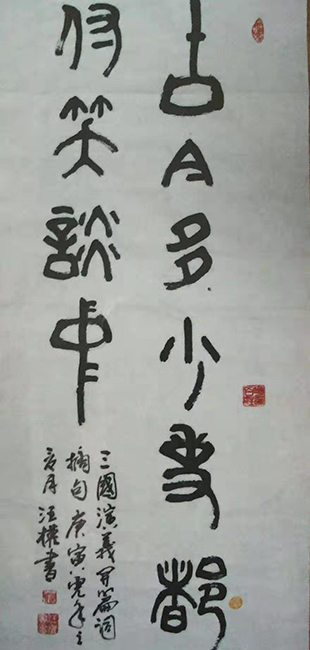 古今多少事都
付笑谈中
三國演義開篇詞
摘句庚寅虎年之
夏月汪權書